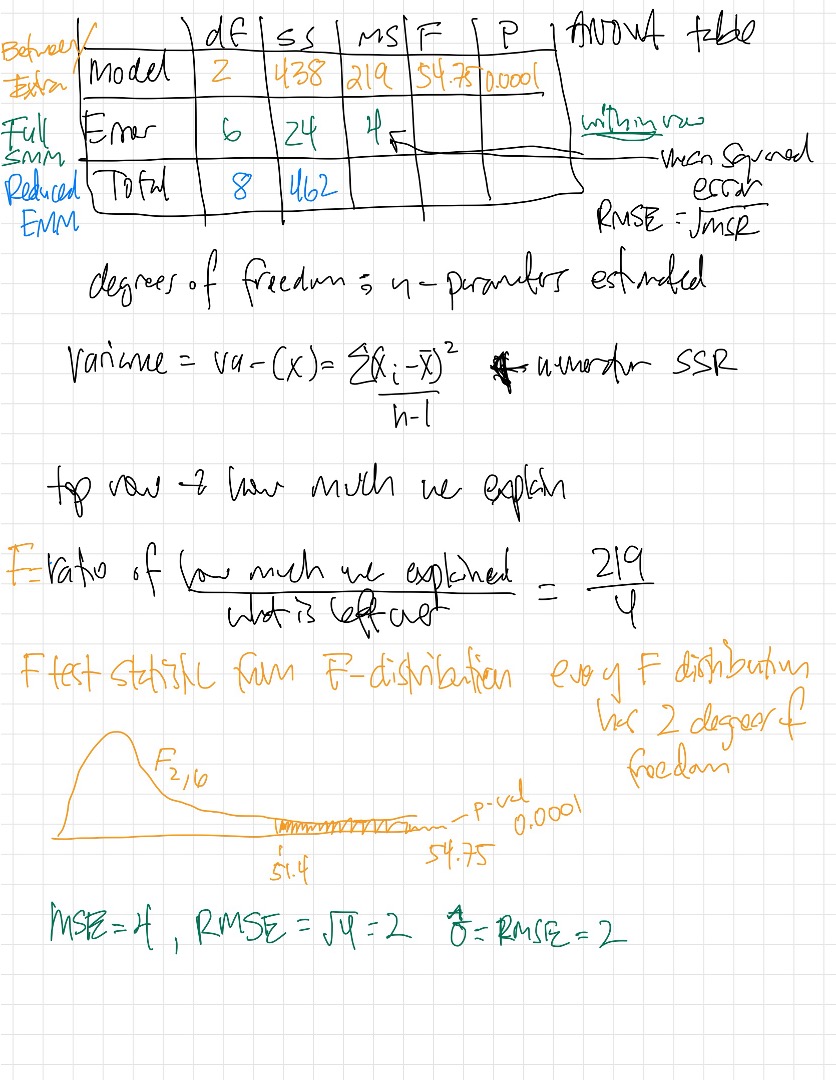 df SS MS F P ANOVA table
Between/
Extra Model 2 438 219 54.75 0.0001
Full
SMM Error 6 24 4 within row
mean squared
error
Reduced
EMM Total 8 462
RMSE = √MSR
degrees of freedom : n - parameters estimated
Variance = var(x) = Σ(xi - x̄)² / n-1 ← numerator SSR
top row → how much we explain
F = ratio of how much we explained / what is left over = 219 / 4
F test statistic from F-distribution every F distribution
has 2 degree of
freedom
F2,6
p-val
0.0001
51.4 54.75
MSE = 4, RMSE = √4 = 2 σ̂ = RMSE = 2